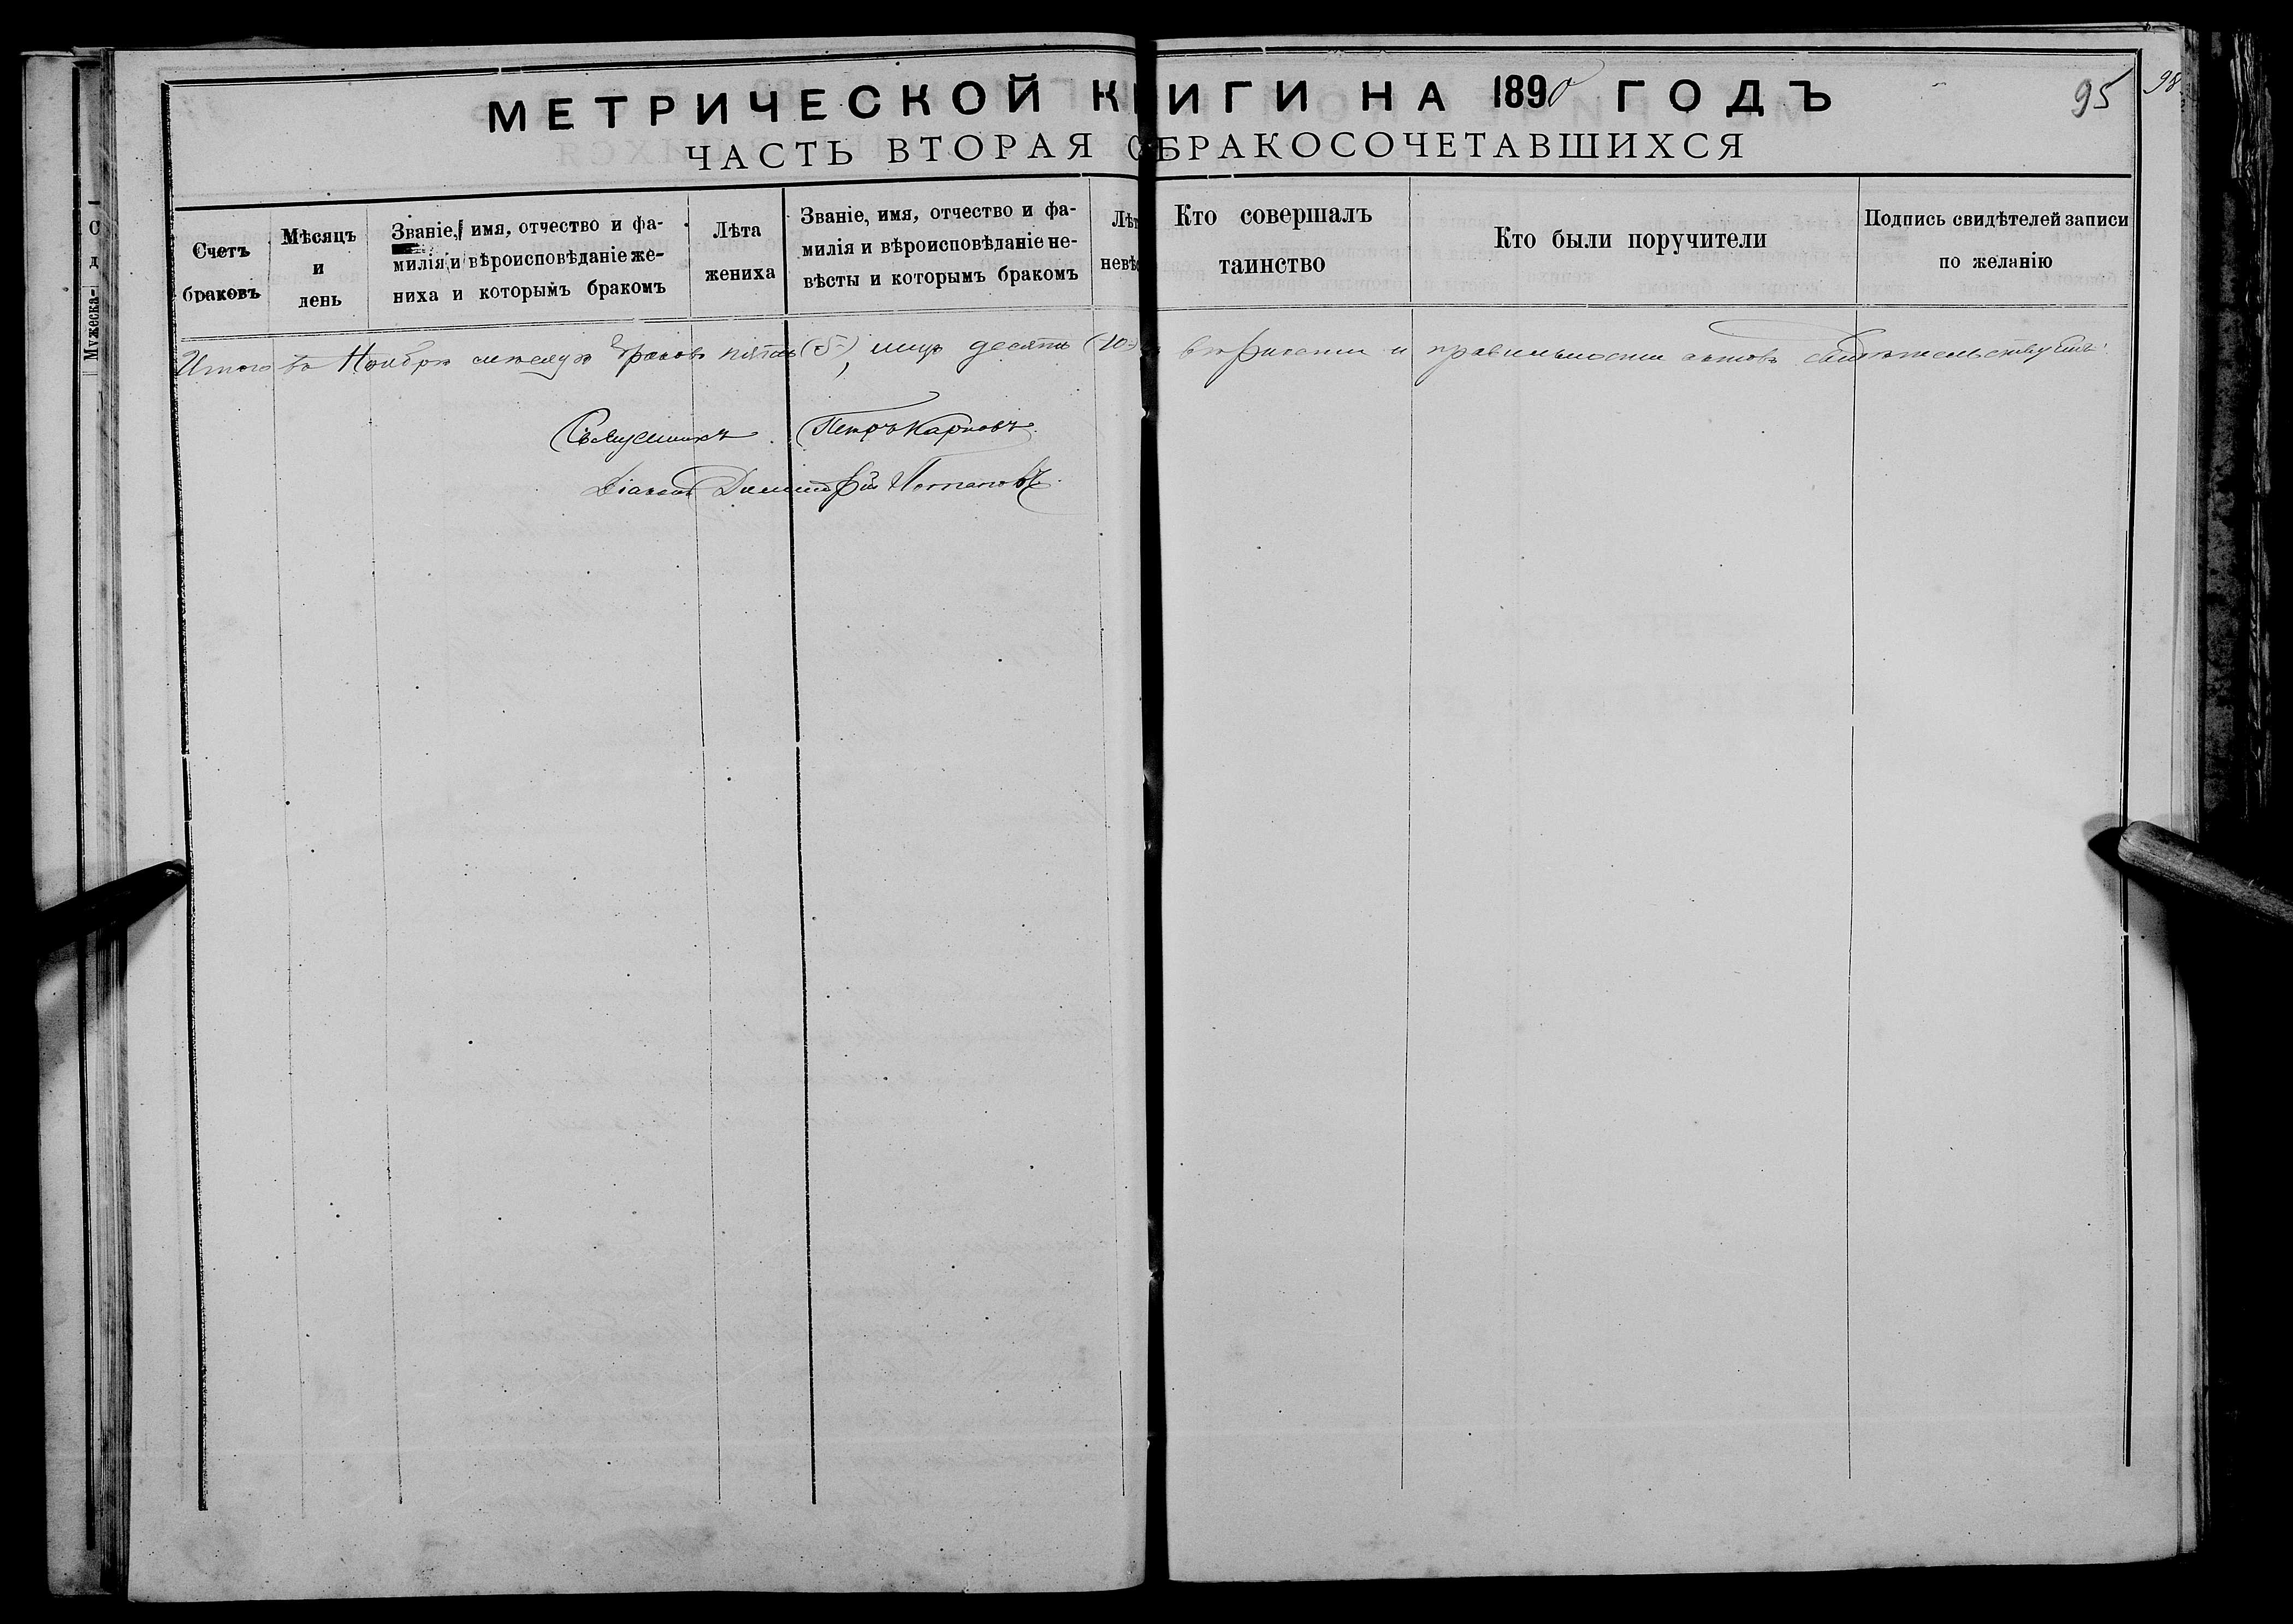 МЕТРИЧЕСКОЙ КНИГИ НА 1890 ГОДЪ
95
98
ЧАСТЬ ВТОРАЯ О БРАКОСОЧЕТАВШИХСЯ
Счетъ
браковъ
Мѣсяцъ
и
день
Званіе, имя, отчество и фа-
милія и вѣроисповѣданіе же-
ниха и которымъ бракомъ
Лѣта
жениха
Званіе, имя, отчество и фа-
милія и вѣроисповѣданіе не-
вѣсты и которымъ бракомъ
Лѣт
невѣс
Кто совершалъ
таинство
Кто были поручители
Подпись свидѣтелей записи
по желанію
Мужеска-
Итого въ Ноябрѣ мѣсяцѣ браковъ пять (5), лицъ десять (10) и правильности актовъ свидѣтельствуемъ:
Священникъ Петръ Карповъ.
Діаконъ Димитрій Потаповъ.